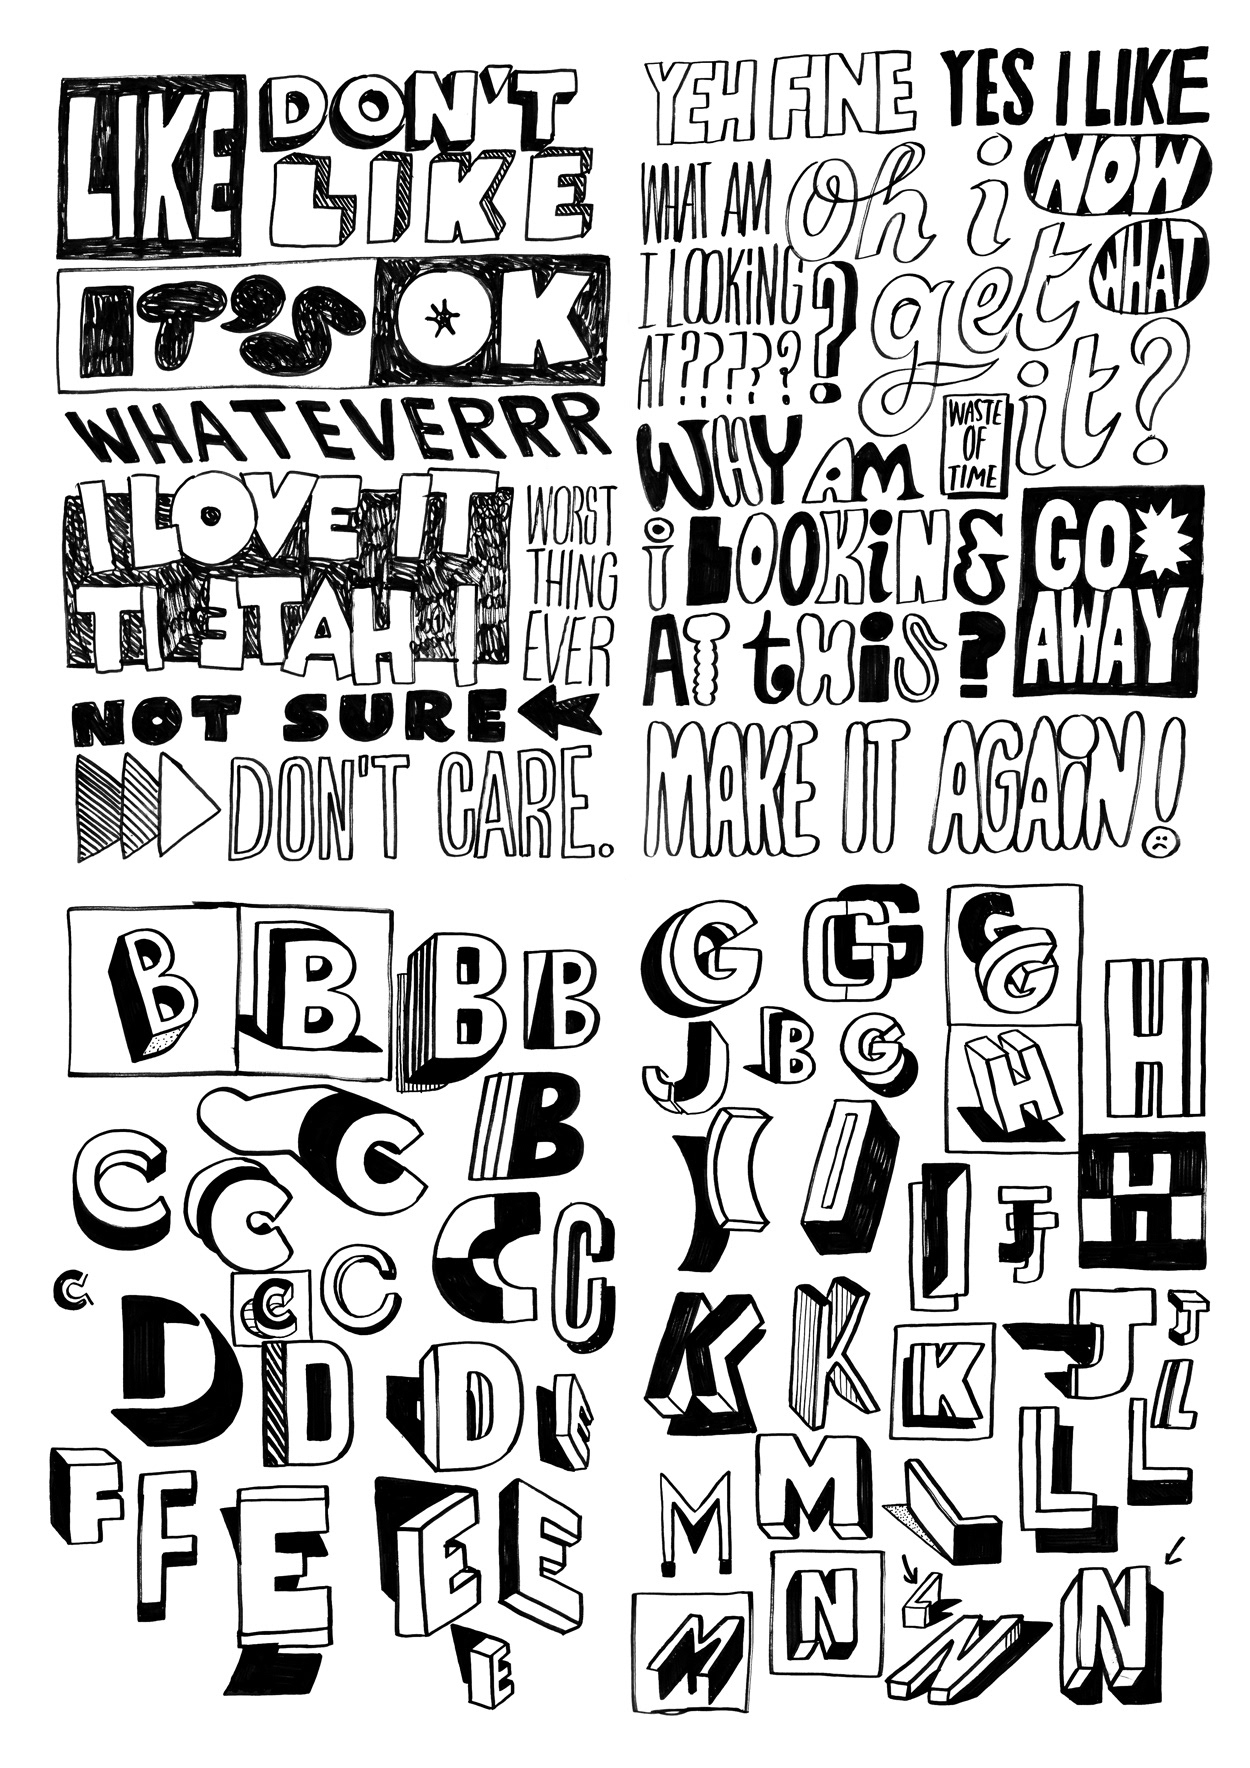 LIKE
DON'T
LIKE
IT'S OK
WHATEVERRR
I LOVE IT
TI ETAH I
WORST
THING
EVER
NOT SURE
DON'T CARE.
YEH FINE
YES I LIKE
WHAT AM
I LOOKING
AT????? ?
Oh i
get
it?
NOW
WHAT
WASTE
OF
TIME
WHY AM
i LOOKiNG
AT tHiS ?
GO
AWAY
MAKE IT AGAiN!
B B B B
B
C C C
C C
C C C C
D D D E
F F E E E
E
G G G H
J B G H
I I I J H
K K K J J
L L L
M M L
M N L N N